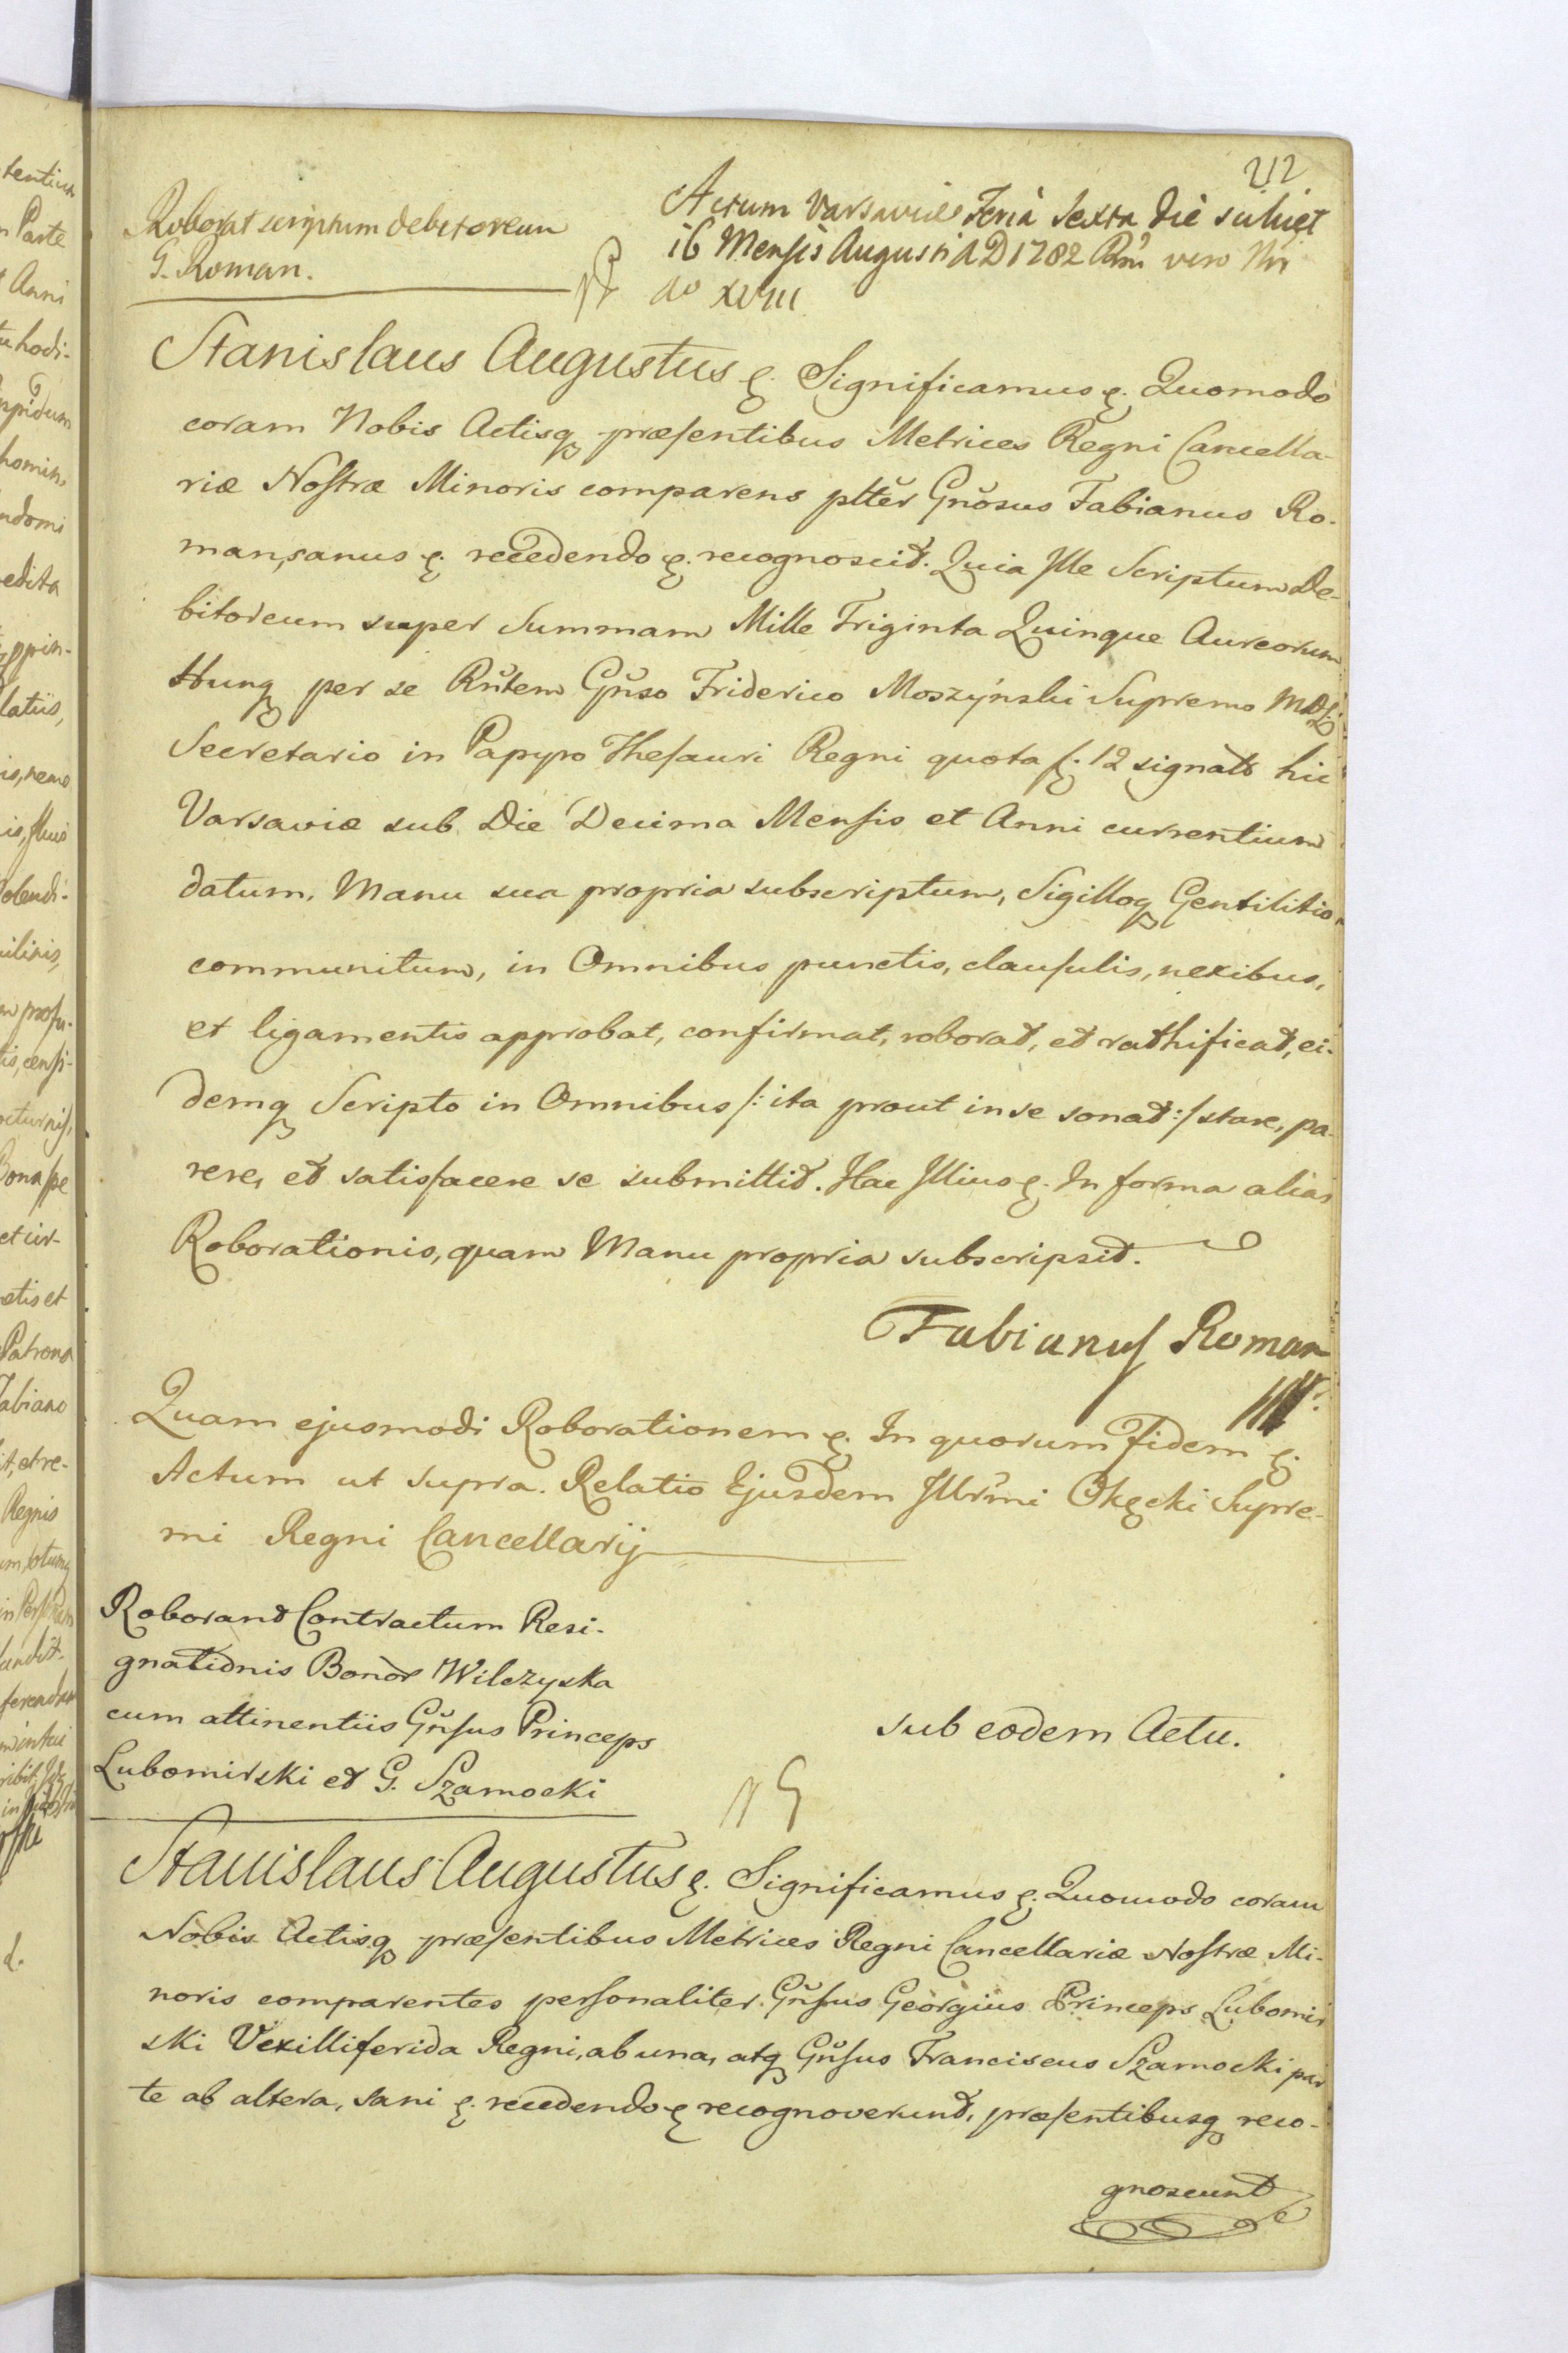 212
Roborat scriptum debitoreum
G. Roman.
Actum Varsaviæ Feria Sexta die scilicet
16 Mensis Augusti AD 1782 Rni vero Nri
ao XVIII
Stanislaus Augustus &. Significamus &. Quomodo
coram Nobis Actisq præsentibus Metrices Regni Cancella-
riæ Nostræ Minoris comparens pltter Gnosus Fabianus Ro-
man, sanus &. recedendo &. recognoscit. Quia Ille Scriptum De-
bitoreum super Summam Mille Triginta Quinque Aureorum
Hung per se Rntem Gnso Friderico Moszyński Supremo MDL
Secretario in Papyro Thesauri Regni quota f. 12 signato hic
Varsaviæ sub Die Decima Mensis et Anni currentium
datum, Manu sua propria subscriptum, Sigilloq Gentilitio
communitum, in Omnibus punctis, clausulis, nexibus,
et ligamentis approbat, confirmat, roborat, et rathificat, ei-
demq Scripto in Omnibus /: ita prout in se sonat :/ stare, pa-
rere, et satisfacere se submittit. Hac Illius &. In forma alias
Roborationis, quam Manu propria subscripsit.
Fabianus Roman
Quam ejusmodi Roborationem &. In quorum Fidem &.
Actum ut supra. Relatio Ejusdem Illrmi Okęcki Supre-
mi Regni Cancellarij
Roborand Contractum Resi-
gnationis Bonor Wilczyska
cum attinentiis Gnsus Princeps
Lubomirski et G. Szamocki
sub eodem Actu.
Stanislaus Augustus &. Significamus &. Quomodo coram
Nobis Actisq præsentibus Metrices Regni Cancellariæ Nostræ Mi-
noris comparentes personaliter Gnsus Georgius Princeps Lubomir
ski Vexilliferida Regni, ab una, atq Gnsus Franciscus Szamocki par
te ab altera, sani &. recedendo & recognoverunt, præsentibusq reco-
gnoscunt